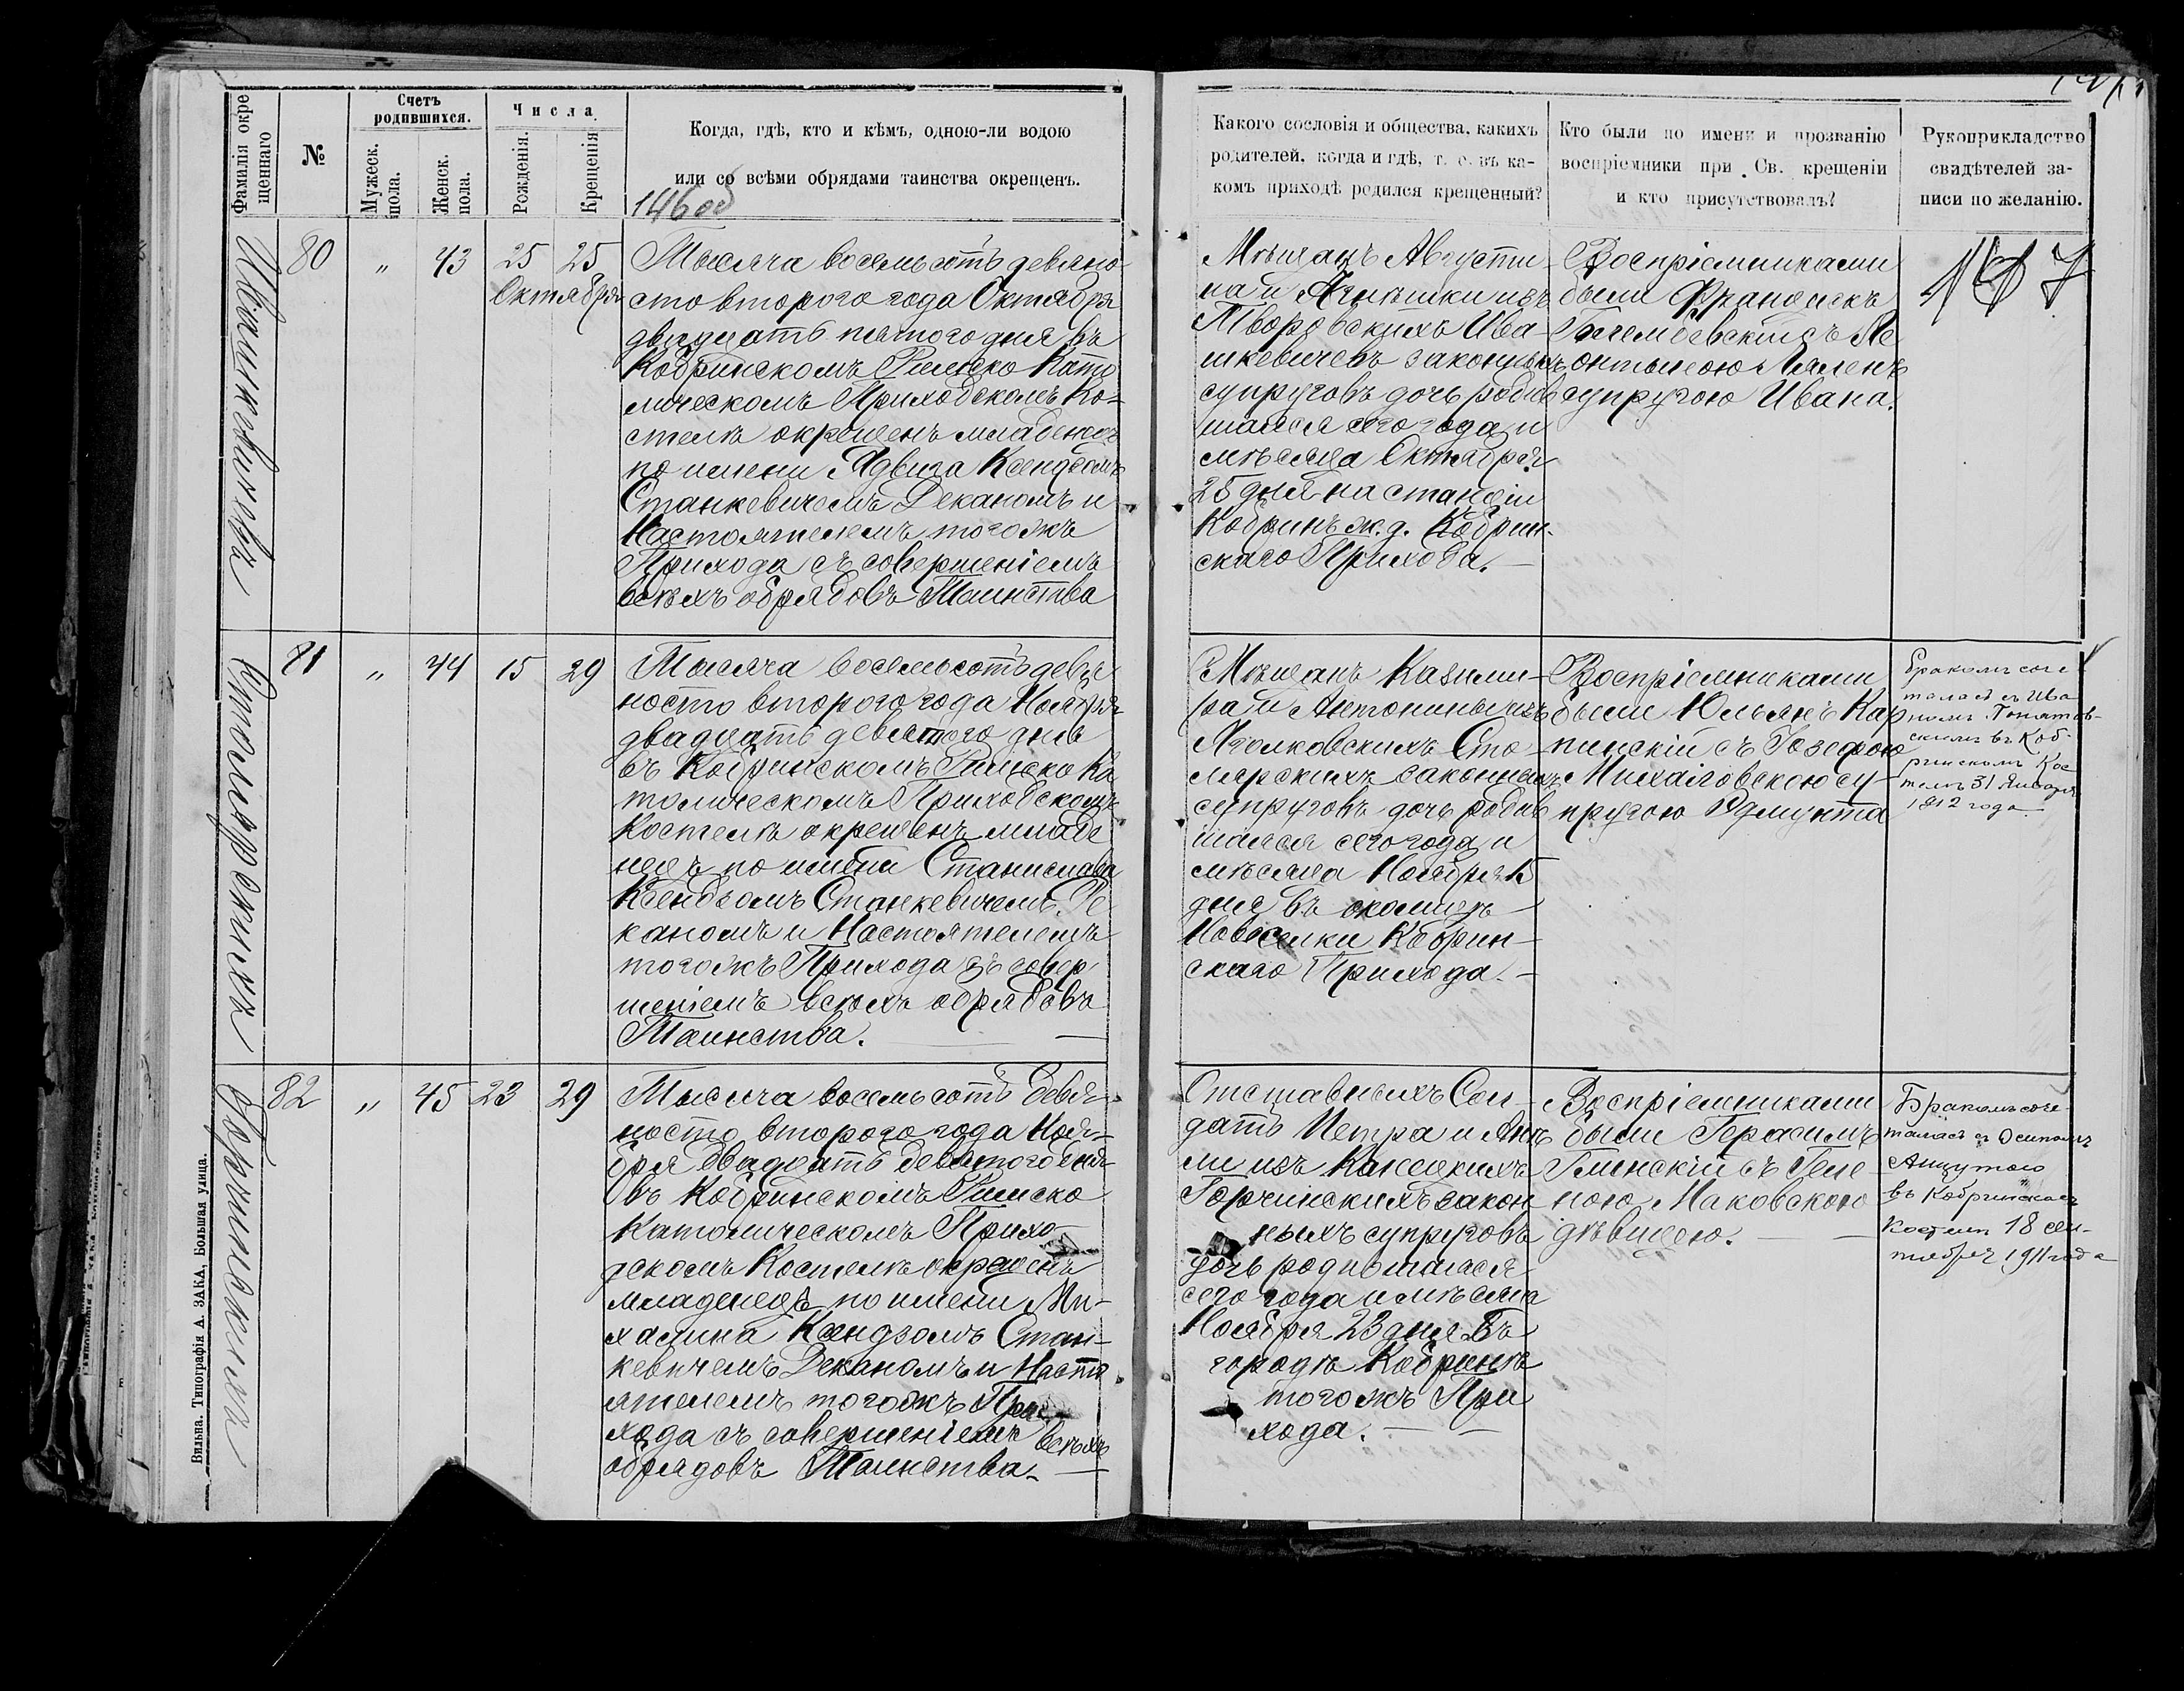 Фамилія окре
щеннаго
№
Счетъ
родившихся.
Мужеск.
пола.
Женск.
пола.
Числа
Рожденія.
Крещенія
Когда, гдѣ, кто и кѣмъ, одною-ли водою
или со всѣми обрядами таинства окрещенъ.
146 об
Какого сословія и общества, какихъ
родителей, когда и гдѣ, т. е. въ ка-
комъ приходѣ родился крещенный?
Кто были по имени и прозванію
воспріемники при Св. крещеніи
и кто присутствовалъ?
Рукоприкладство
свидѣтелей за-
писи по желанію.
Ивашкевичевъ
80 „ 43 25 25
Октября
Тысяча восемьсотъ девяно-
сто второго года Октября
двадцать пятого дня въ
Кобринскомъ Римско Като
лическомъ Приходскомъ Ко-
стелѣ окрещенъ младенецъ
по имени Ядвига Ксендзомъ
Станкевичемъ Деканомъ и
Настоятелемъ тогожъ
Прихода съ совершеніемъ
всѣхъ обрядовъ Таинства
Мѣщанъ Августи-
на и Агнѣшки изъ
Творовскихъ Ива-
шкевичевъ законныхъ
супруговъ дочь родив
шаяся сего года и
мѣсяца Октября
25 дня на станціи
Кобринъ ж. д. Кобрин-
скаго Прихода.
Воспріемниками
были Францискъ
съ Ле
онтыною
супругою Ивана.
Столярскихъ
81 „ 44 15 29
Тысяча восемьсотъ девя
носто второго года Ноября
двадцать девятого дня
въ Кобринскомъ Римско Ка
толическомъ Приходскомъ
Костелѣ окрещенъ младе
нецъ по имени Станислава
Ксендзомъ Станкевичемъ Де
каномъ и Настоятелемъ
тогожъ Прихода съ совер
шеніемъ всѣхъ обрядовъ
Таинства.
Мѣщанъ Казими-
ра и Антонины изъ
Яголковскихъ Сто-
лярскихъ законныхъ
супруговъ дочь родив
шаяся сего года и
мѣсяца Ноября 15
дня въ околицѣ
Новоселки Кобрин-
скаго Прихода.
Воспріемниками
были Юльянъ Кар
пинскій съ Іозефою
Михаловскою су-
пругою Эдмунта
Бракомъ соче
талась съ Ива
номъ Понятов-
скимъ въ Коб-
ринскомъ Кос
телѣ 31 Января
1812 года.
Горчинскихъ
82 „ 45 23 29
Тысяча восемьсотъ девя-
носто второго года Ноя-
бря двадцать девятого дня
въ Кобринскомъ Римско
Католическомъ Прихо-
дскомъ Костелѣ окрещенъ
младенецъ по имени Ми-
халина Ксендзомъ Стан-
кевичемъ Деканомъ и Насто
ятелемъ тогожъ При-
хода съ совершеніемъ всѣхъ
обрядовъ Таинства.
Отставныхъ Сол-
датъ Петра и Ан
ли изъ
Горчинскихъ закон
ныхъ супруговъ
дочь родившаяся
сего года и мѣсяца
Ноября 23 дня въ
городѣ Кобринѣ
тогожъ При
хода.
Воспріемниками
были Герасимъ
Глинскій съ Геле
ною Маковскою
дѣвицею.
Бракомъ соче-
талась съ Осипомъ
Анцутою
въ Кобринскомъ
Костелѣ 18 сен-
тября 1911 года
Вильна. Типографія А. ЗАКА, Большая улица.